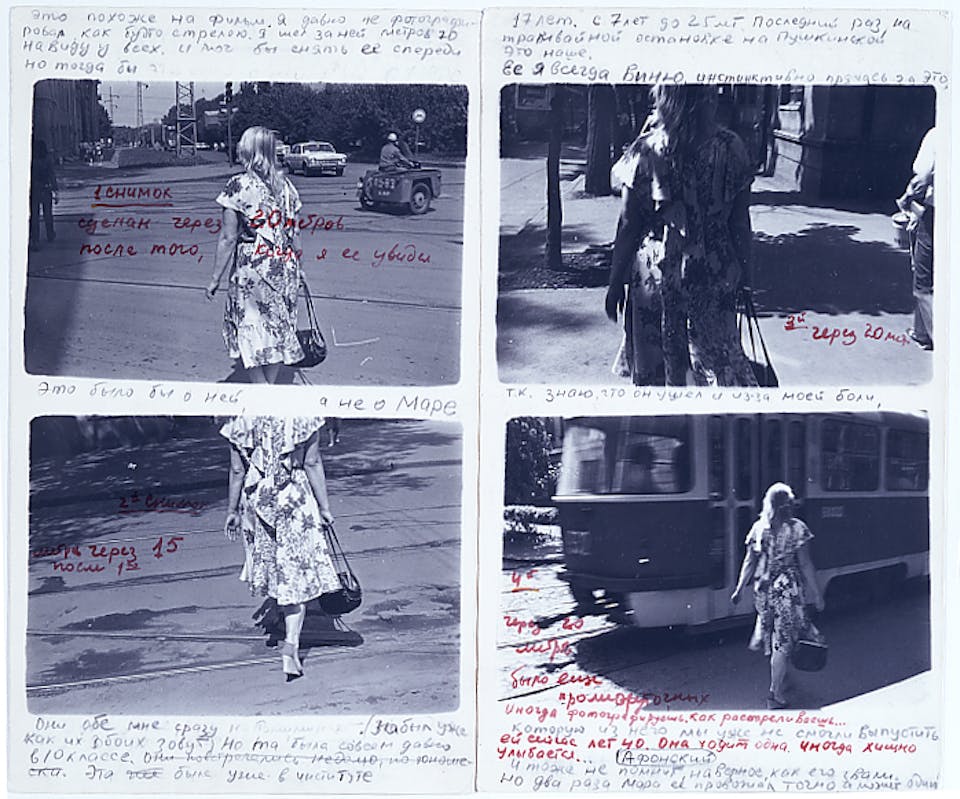 Это похоже на фильм. Я давно не фотографи-
ровал, как будто стреляю. Я шел за ней метров 20
на виду у всех. И мог бы снять ее спереди
но тогда бы
1 снимок
сделан через 20 метров
после того, когда я ее увидел
Это было бы о ней, а не о Маре
2й снимок
метра через 15
после 1го
Они обе мне сразу (забыл уже
как их обоих зовут) Но та была совсем давно
в 10 классе. они встречались недолго, но юноше-
ски. Эта уже была уже в институте
17 лет. с 7 лет до 25 лет. Последний раз, на
трамвайной остановке на Пушкинской
Это наше.
Ее я всегда виню, инстинктивно прячась за это
3й
через 20 мет.
т.к. знаю, что он ушел и из-за моей боли,
4й
через 20
метра
было еще
промежуточных
Иногда фотографируешь, как расстреливаешь...
которую из него мы уже не смогли выпустить
ей сейчас лет 40. Она ходит одна. иногда хищно
улыбается... Афонский
тоже не помнит, наверное, как его звали.
но два раза Мара ее провожал точно и может один